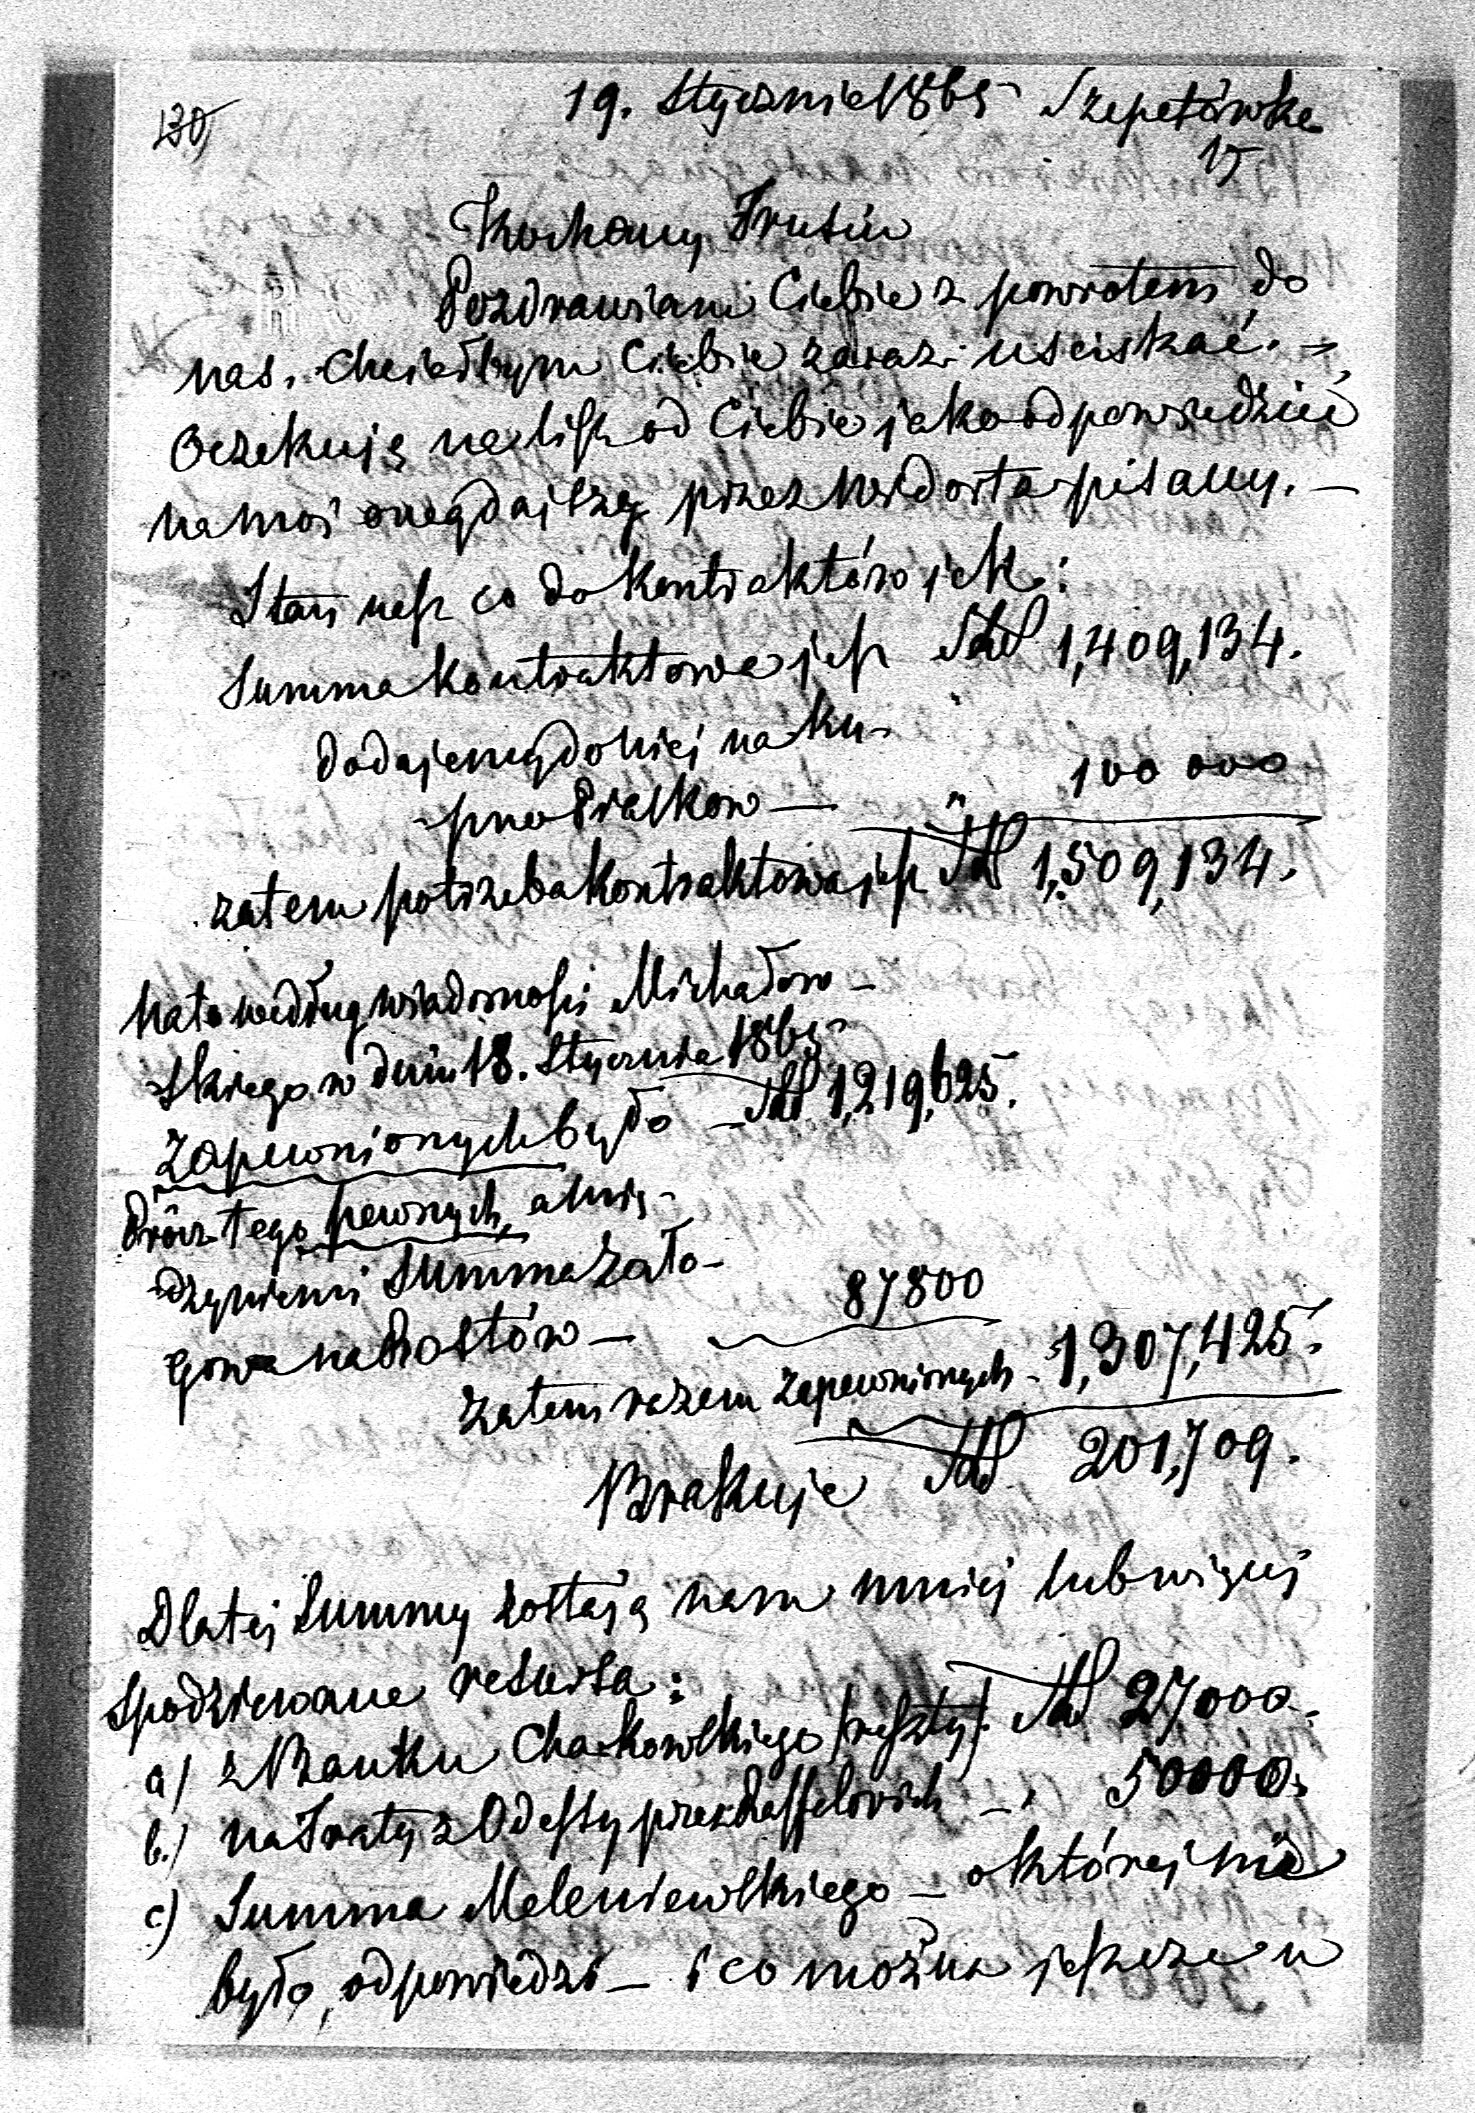 130
19. Stycznia 1865 Szepetówka
15
Kochany Frusiu
Pozdrawiam Ciebie z powrotem do
nas, chciałbym Ciebie zaraz uściskać. —
Oczekuję na list od Ciebie jako odpowiedzieć
na mój onegdajszy przez pisany. —
Stan nasz co do kontraktów jest:
Summa kontraktowa jest Rbl 1,409,134.
dodajemy do niej na ku-
-pno Piaskow — " 100 000
zatem potrzeba kontraktowa jest Rbl 1,509,134.
Na to według wiadomości Michałow-
skiego w dniu 18. Stycznia 1865
zapewnionych było — Rbl 1,219,625.
Prócz tego pewnych, a mię-
-dzy niemi Summa Zało-
gowa na Rostów — 87800
zatem razem zapewnionych — 1,307,425.
Brakuje Rbl 201,709.
Dla tej Summy zostają nam mniej lub więcej
spodziewane resursa:
a) z Banku Charkowskiego /reszty/. Rbl 27000.
b.) na Traty z Odessy przez Raffalovich — " 50000.
c) Summa Meleniewskiego — o której nie
było odpowiedzi — i co można jeszcze u